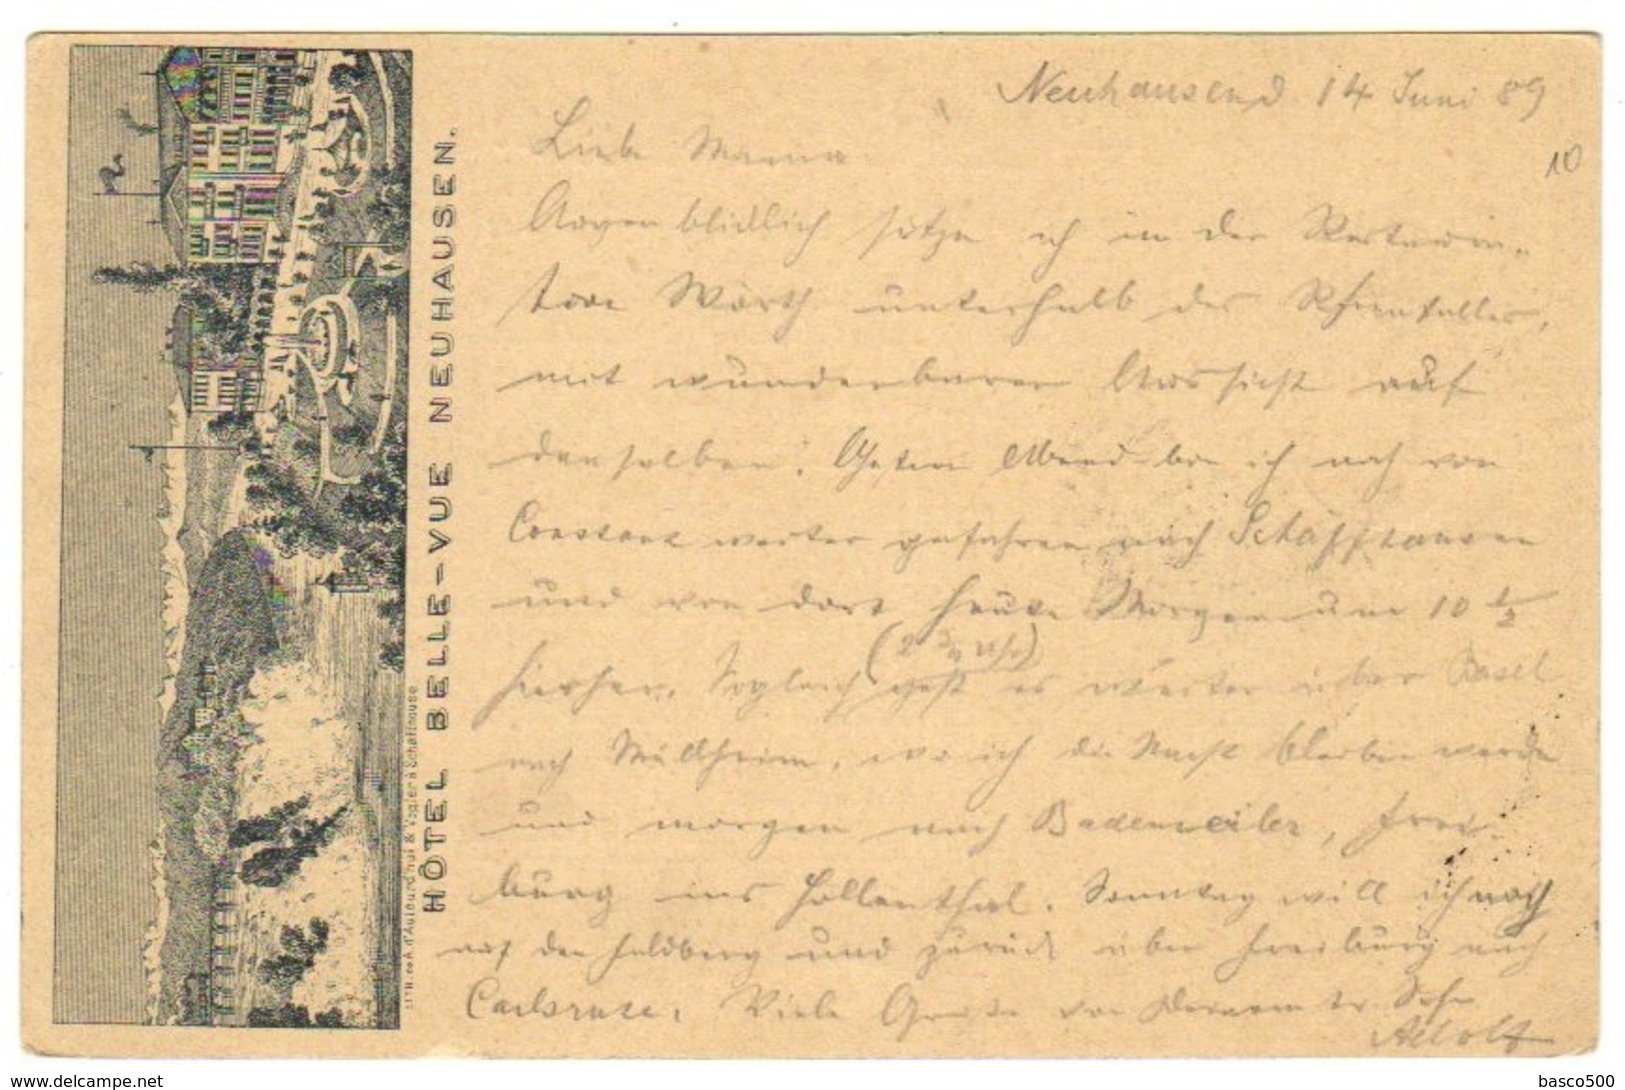 Neuhausen d 14 Juni 89
10
Liebe Mama
Augenblicklich sitze ich in der Restaura-
tion Wörth unterhalb des Rheinfalles,
mit wunderbarer Aussicht auf
denselben. Gestern Abend bin ich noch von
Constanz weiter gefahren nach Schaffhausen
und von dort heute Morgen um 10 1/2
(2 3/4 Uhr)
hierher. Sogleich geht es weiter über Basel
nach Müllheim, wo ich die Nacht bleiben werde
und morgen nach Badenweiler, Frei-
burg ins Höllenthal. Sonntag will ich noch
auf den Feldberg und zurück über Freiburg nach
Carlsruhe. Viele Grüße von Deinem tr. Sohn
Adolf
HÔTEL BELLE-VUE NEUHAUSEN.
LITH. & Vogler à Schaffhouse
www.delcampe.net
basco500